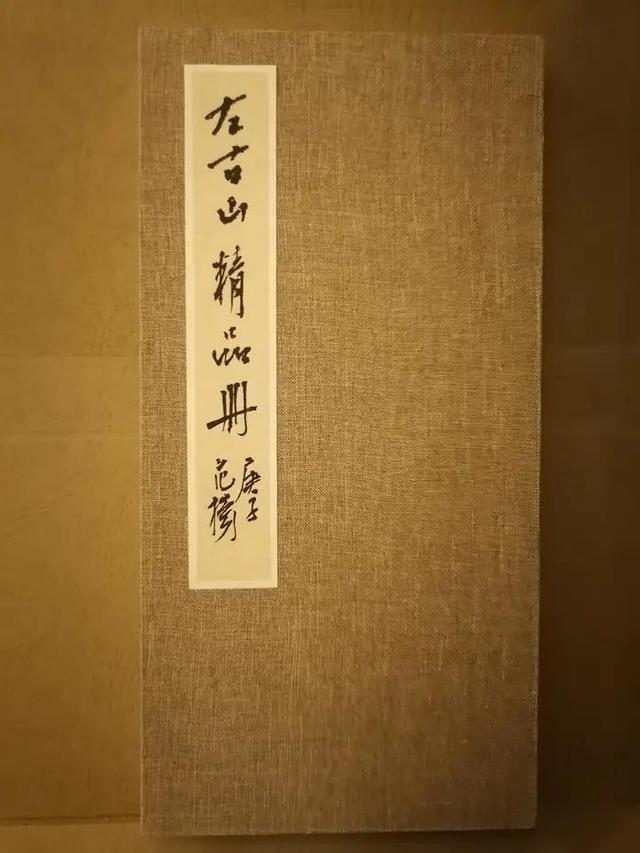 左古山精品册
庚子
范扬